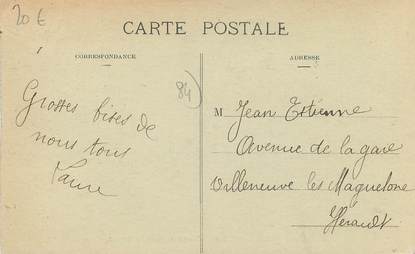 20 €
CARTE POSTALE
CORRESPONDANCE
ADRESSE
84)
Grosses bises de
nous tous
M Jean Estienne
Avenue de la gare
Villeneuve les Maguelone
Hérault